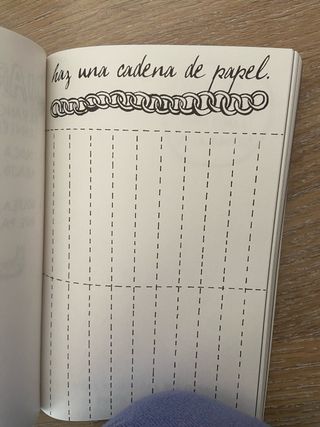 haz una cadena de papel.